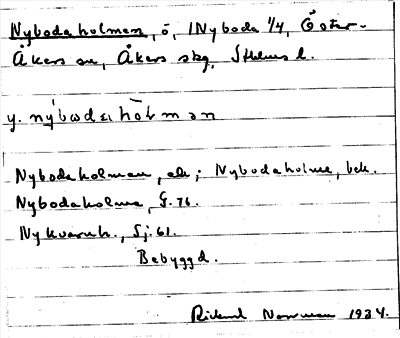 Nybodaholmen, ö, i Nyboda 1/4, Öster-
Åkers sn, Åkers skg, Sthlms l.
y. nybodaholman
Nybodaholman, ek; Nybodaholme, bek.
Nybodaholme, G. 76.
Nykvarnh., Sj. 61.
Bebyggd.
Rickard Norrman 1934.